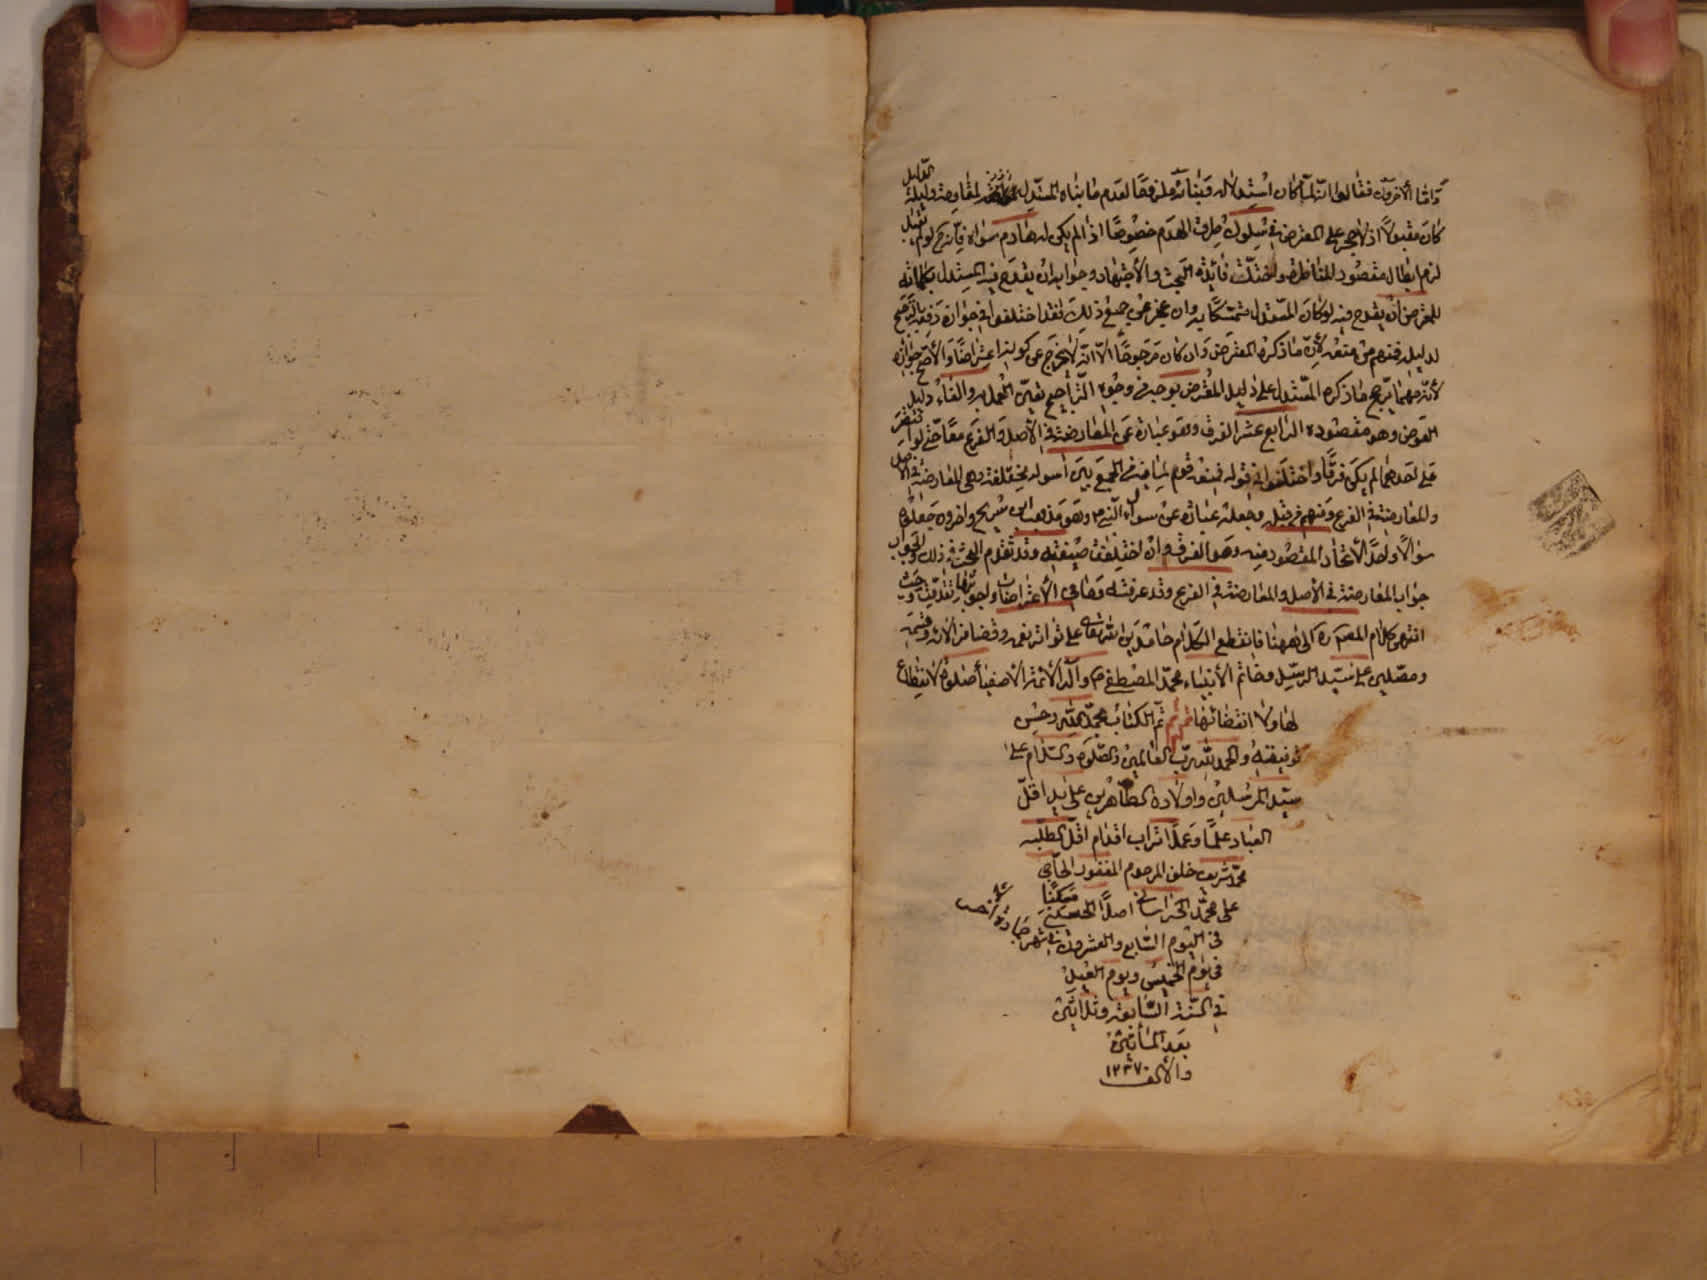 وامّا الآخرون فقالوا انّه لمّا كان استدلاله وبناؤه ملزمًا لعدم ما بناه المستدل لمقاومة دليله الدليل
كان مقبولًا اذ لا حجر على المعترض في سلوك طرق الهدم خصوصًا اذا لم يكن له هادم سواه فانه لو لم يقبل
لزم ابطال مقصود المناظرة واختلّت فائدة البحث والاجتهاد وجوابه ان يقدح فيه المستدل بكلما له
للمعترض ان يقدح فيه لو كان المستدل متمسّكًا به وان عجز عن جميع ذلك فقد اختلفوا في جواز دفعه بالترجيح
لدليله فمنهم من منعه لأنّ ما ذكره المعترض وان كان مرجوحًا الّا انّه لا يخرج عن كونه اعتراضًا والأصح جوازه
لأنّه مهما ترجح ما ذكره المستدل على دليل المعترض بوجه من وجوه التراجيح تعيّن العمل به والغاء دليل
المعترض وهو مقصوده الرابع عشر الفرق وهو عبارة عن المعارضة في الأصل والفرع معًا حتّى لو اقتصر
على احدهما لم يكن فرقًا واختلفوا في قبوله فمنعه قوم لما فيه من الجمع بين اسوله مختلفة وهي المعارضة في الأصل
والمعارضة في الفرع ومنهم من قبله وجعله عبارة عن سوالين وهو مذهب ابن شريح واخرون جعلوه
سوالًا واحدًا لاتحاد المقصود منه وهو الفرق وان اختلفت صيغته وقد تقدم البحث في ذلك والجواب
جواب المعارضة في الأصل والمعارضة في الفرع وقد عرفته وهاهي الاعتراضات واجوبتها تقدمت وحيث
انتهى كلام المصره الى ههنا فانقطع الكلام حامدين الله تعالى على تواتر نعمه وتضافر آلائه وقسمه
ومصلين على سيد الرسل وخاتم الأنبياء محمّد المصطفى ص وآله الأئمة الأصفياء صلوة لا انقطاع
لها ولا انقضائها تم تم تم الكتاب بحمد الله وحسن
توفيقه والحمد لله رب العالمين والصلوة والسلام على
سيد المرسلين واولاده الطاهرين على يد اقلّ
العباد علمًا وعملًا تراب اقدام اقلّ الطلبه
محمّد شريف خلف المرحوم المغفور الحاجي
على محمّد الخراساني اصلًا الحسيني مسكنًا
في اليوم السابع والعشرون في شهر جمادى
في يوم الخميس ويوم الغيل
في السنة السابعة وثلاثين
بعد المأتين
والألف ١٢٣٧